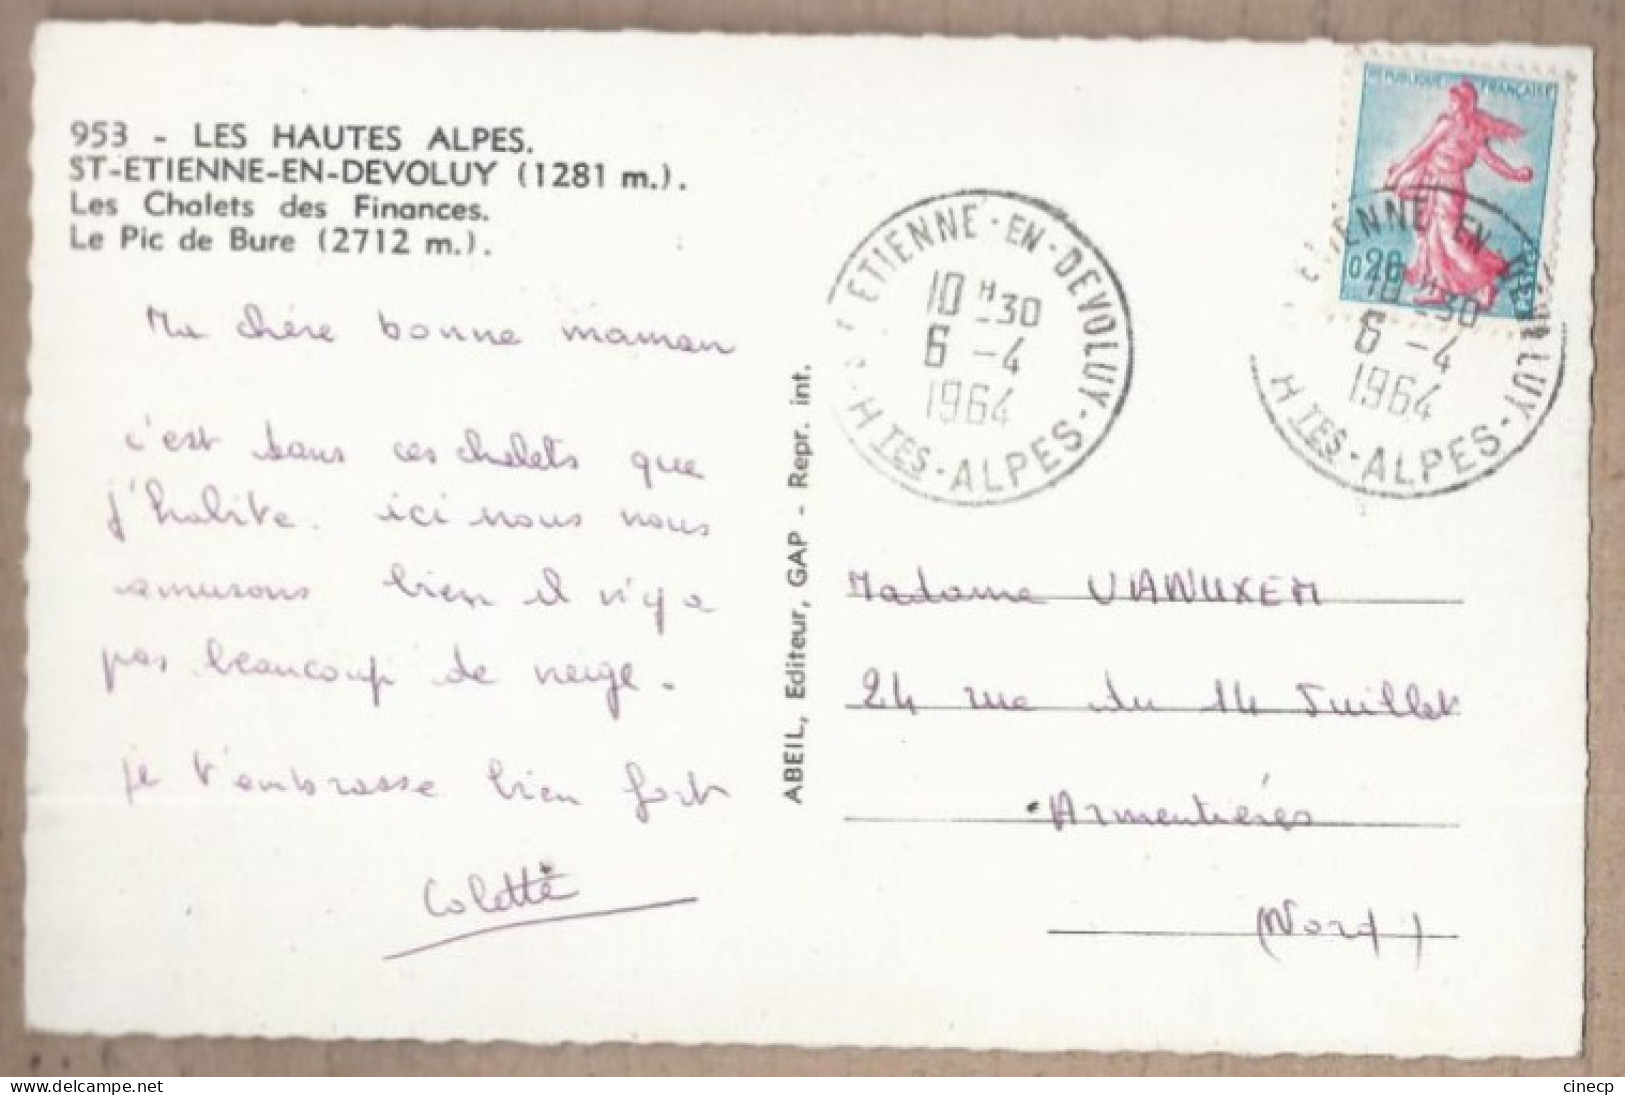 953 - LES HAUTES ALPES.
ST-ETIENNE-EN-DEVOLUY (1281 m.).
Les Chalets des Finances.
Le Pic de Bure (2712 m.).
Ma chère bonne maman
c'est dans ces chalets que
j'habite. ici nous nous
amusons bien il n'y a
pas beaucoup de neige.
je t'embrasse bien fort
Colette
ABEIL, Editeur, GAP - Repr. int.
ST ETIENNE-EN-DEVOLUY
10 H 30
6 - 4
1964
HTES-ALPES
REPUBLIQUE FRANÇAISE
0,20
POSTES
ETIENNE-EN-DEVOLUY
10 H 30
6 - 4
1964
HTES-ALPES
Madame VANUXEM
24 rue du 14 Juillet
Armentières
(Nord)
cinecp